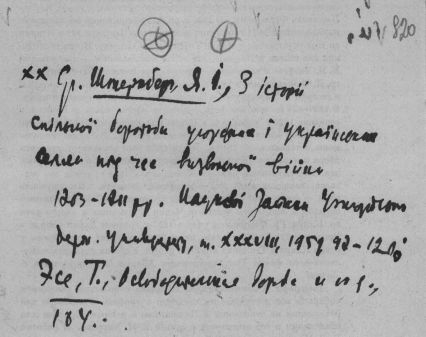 820
xx Ср. Штернберг, Я. І., З історії
спільної боротьби угорських і українських
селян під час визвольної війни
1703-1711 рр. Наукові Записки Ужгородського
держ. університету, т. XXXVIII, 1959, 98-120;
Эсе, Т., Освободительная борьба и
184.